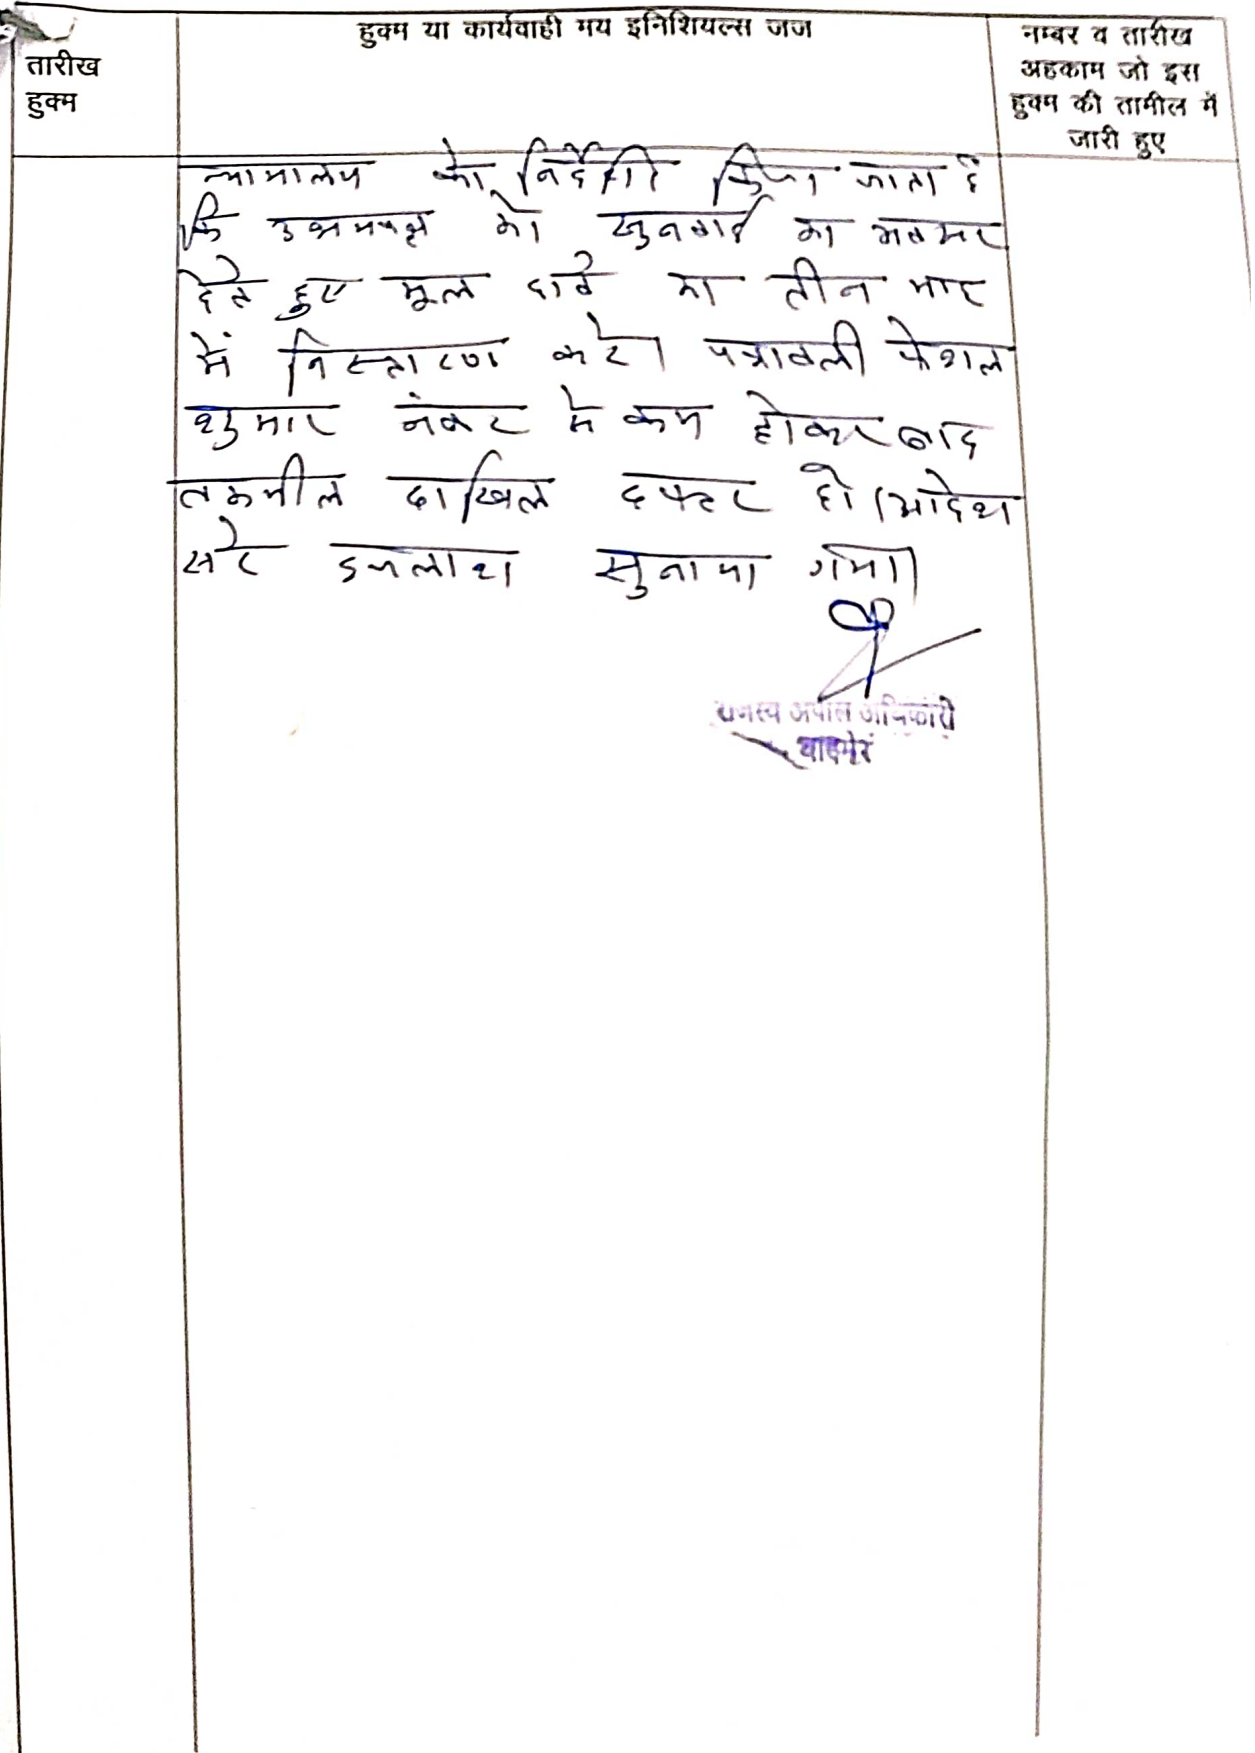 हुक्म या कार्यवाही मय इनिशियल्स जज
तारीख
हुक्म
नम्बर व तारीख
अहकाम जो इस
हुक्म की तामील में
जारी हुए
न्यायालय को निर्देशित किया जाता है
कि उभयपक्ष को सुनवाई का अवसर
देते हुए मूल दावे का तीन माह
में निस्तारण करे। पत्रावली फेशल
शुमार नंबर से कम होकर बाद
तकमील दाखिल दफ्तर हो। आदेश
सरे इजलाश सुनाया गया।
राजस्व अपील अधिकारी
बाड़मेर